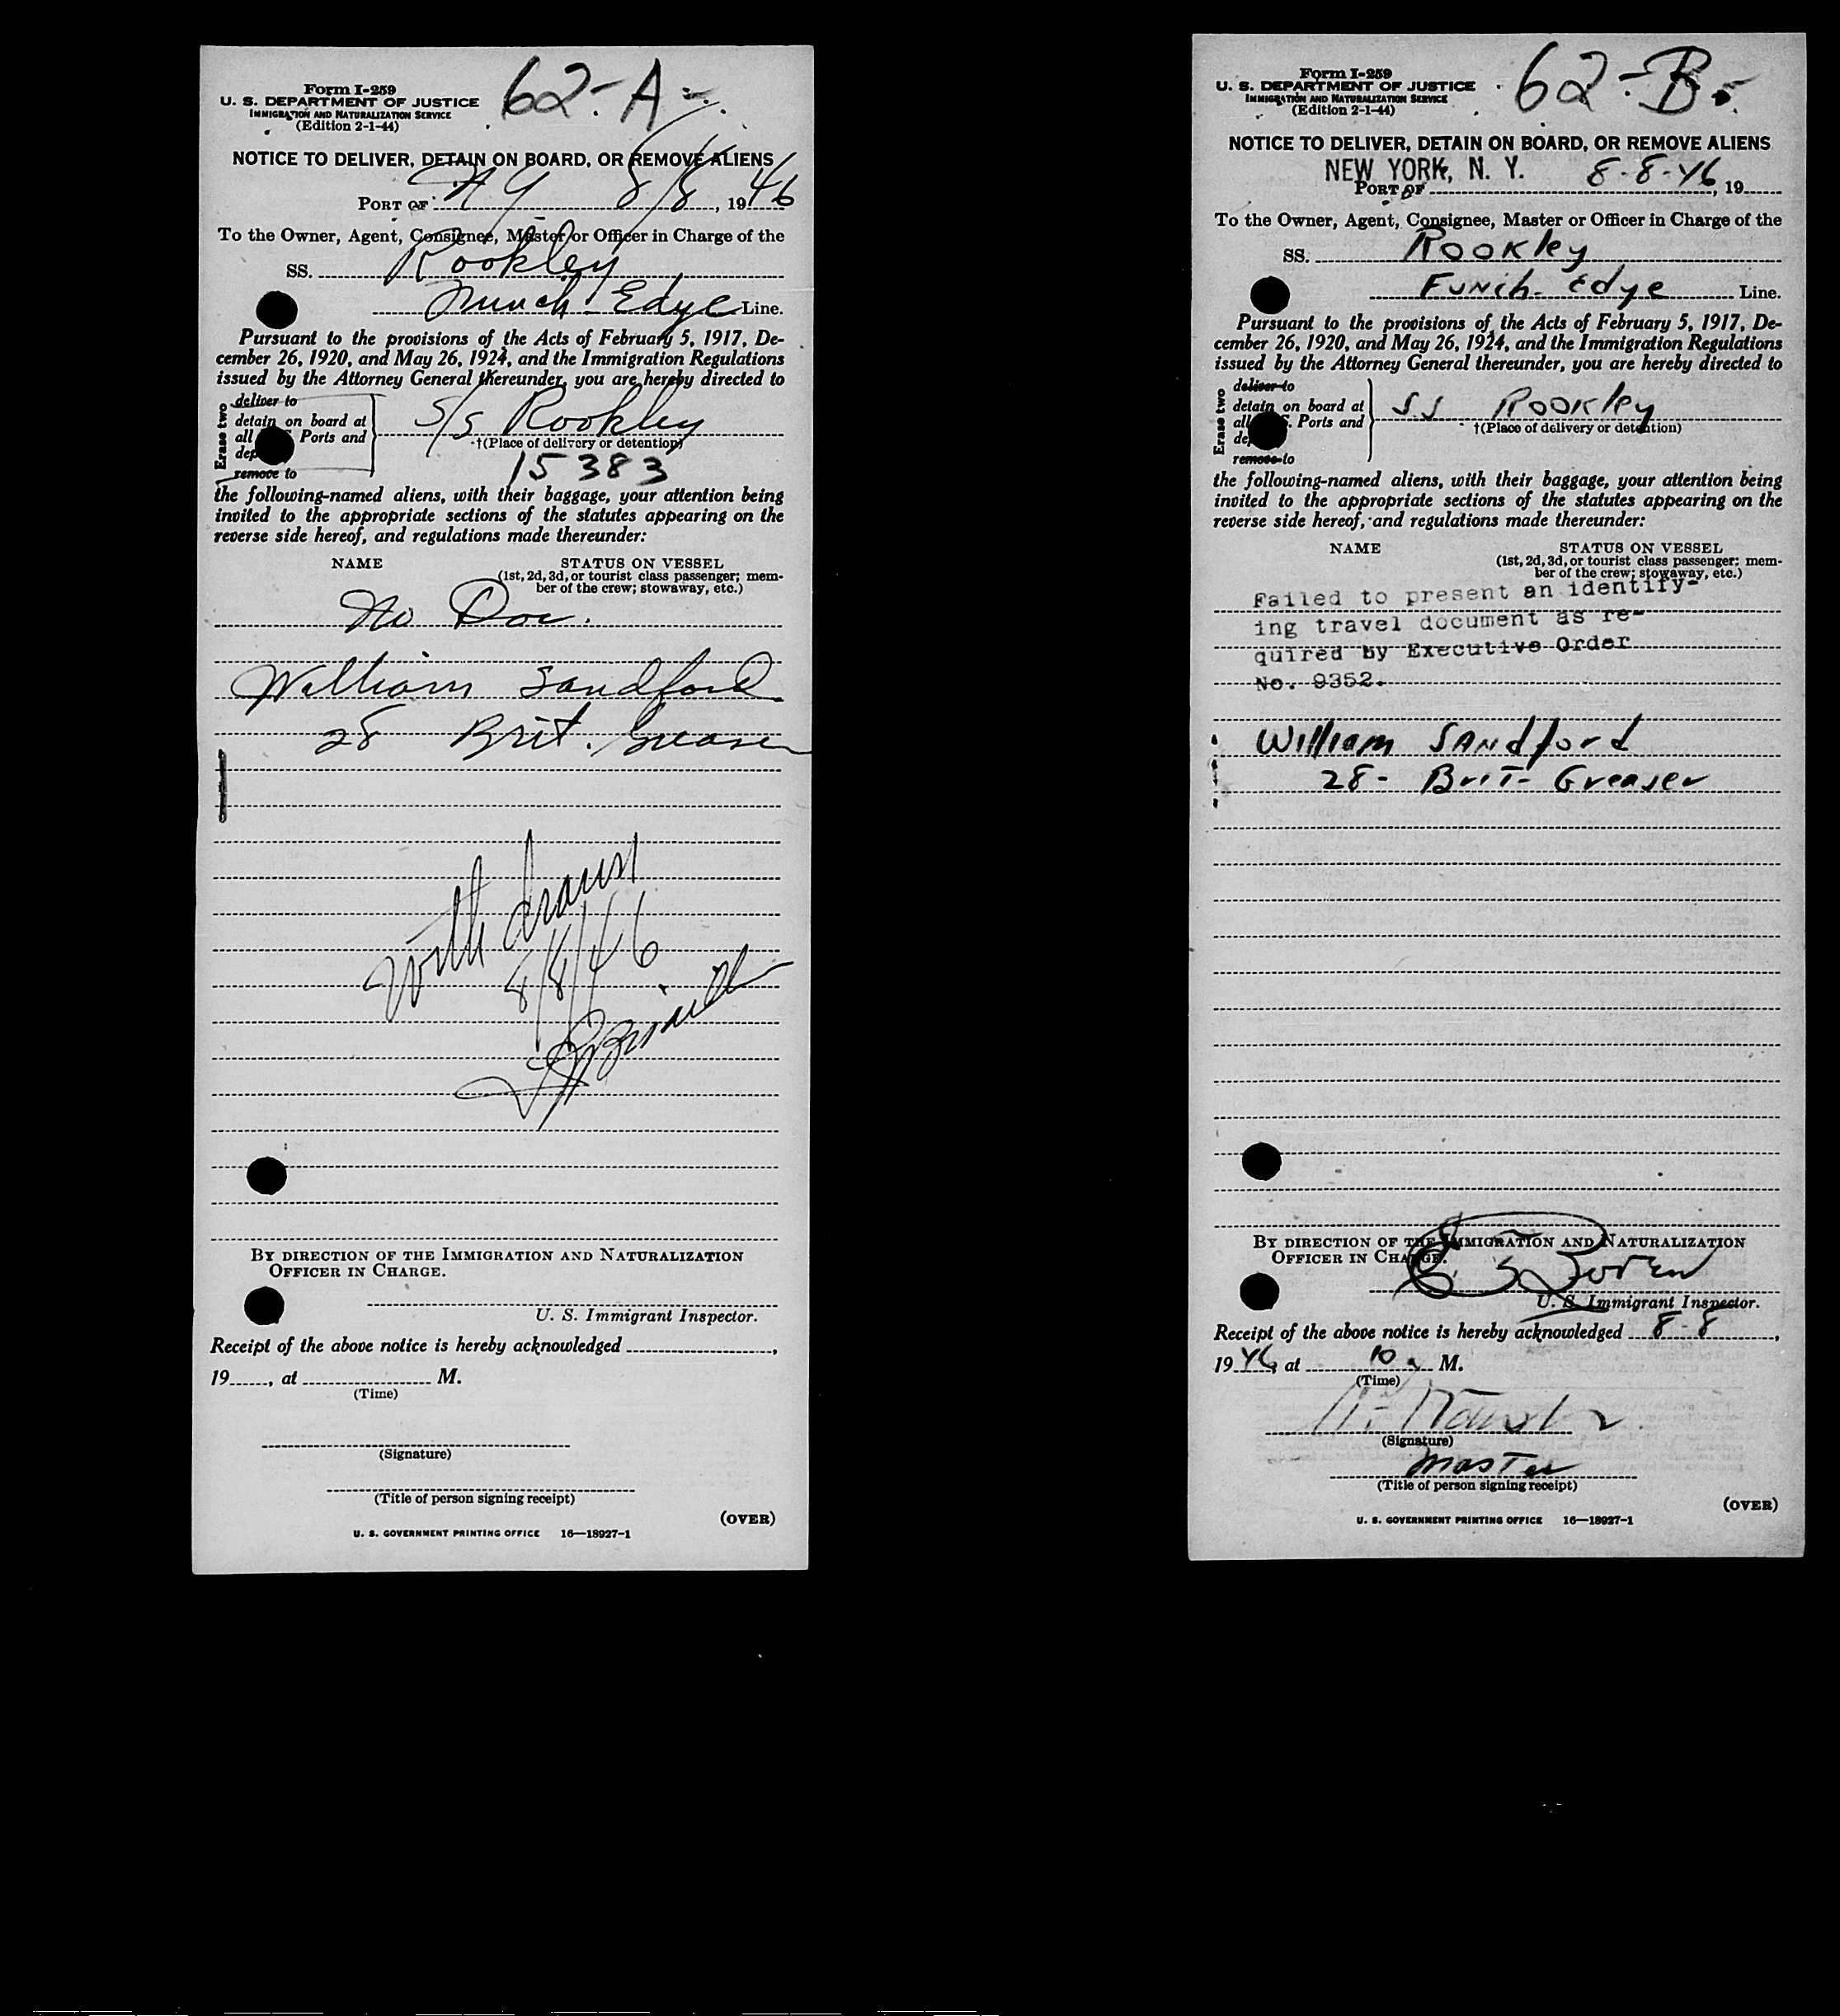 62-A-.
Form I-259
U. S. DEPARTMENT OF JUSTICE
IMMIGRATION AND NATURALIZATION SERVICE
(Edition 2-1-44)
NOTICE TO DELIVER, DETAIN ON BOARD, OR REMOVE ALIENS
PORT OF NY 8/8, 1946
To the Owner, Agent, Consignee, Master or Officer in Charge of the
SS. Rookley
Funch Edye Line.
Pursuant to the provisions of the Acts of February 5, 1917, De-
cember 26, 1920, and May 26, 1924, and the Immigration Regulations
issued by the Attorney General thereunder, you are hereby directed to
Erase two
deliver to
detain on board at
all Ports and
remove to
S/S Rookley
†(Place of delivery or detention)
15383
the following-named aliens, with their baggage, your attention being
invited to the appropriate sections of the statutes appearing on the
reverse side hereof, and regulations made thereunder:
NAME STATUS ON VESSEL
(1st, 2d, 3d, or tourist class passenger; mem-
ber of the crew; stowaway, etc.)
No Doc.
William Sandford
28 Brit. Greaser
Withdrawn
8/8/46
BY DIRECTION OF THE IMMIGRATION AND NATURALIZATION
OFFICER IN CHARGE.
U. S. Immigrant Inspector.
Receipt of the above notice is hereby acknowledged ,
19 , at M.
(Time)
(Signature)
(Title of person signing receipt)
(OVER)
U. S. GOVERNMENT PRINTING OFFICE 16—18927-1
62-B-.
Form I-259
U. S. DEPARTMENT OF JUSTICE
IMMIGRATION AND NATURALIZATION SERVICE
(Edition 2-1-44)
NOTICE TO DELIVER, DETAIN ON BOARD, OR REMOVE ALIENS
NEW YORK, N. Y. 8-8-46
PORT OF , 19
To the Owner, Agent, Consignee, Master or Officer in Charge of the
SS. Rookley
Funch-Edye Line.
Pursuant to the provisions of the Acts of February 5, 1917, De-
cember 26, 1920, and May 26, 1924, and the Immigration Regulations
issued by the Attorney General thereunder, you are hereby directed to
Erase two
deliver to
detain on board at
all Ports and
remove to
S.S Rookley
†(Place of delivery or detention)
the following-named aliens, with their baggage, your attention being
invited to the appropriate sections of the statutes appearing on the
reverse side hereof, and regulations made thereunder:
NAME STATUS ON VESSEL
(1st, 2d, 3d, or tourist class passenger; mem-
ber of the crew; stowaway, etc.)
Failed to present an identify-
ing travel document as re-
quired by Executive Order
No. 9352.
William SANdford
28- Brit- Greaser
BY DIRECTION OF THE IMMIGRATION AND NATURALIZATION
OFFICER IN CHARGE.
U. S. Immigrant Inspector.
Receipt of the above notice is hereby acknowledged 8-8 ,
1946, at 10 a M.
(Time)
(Signature)
Master
(Title of person signing receipt)
(OVER)
U. S. GOVERNMENT PRINTING OFFICE 16—18927-1